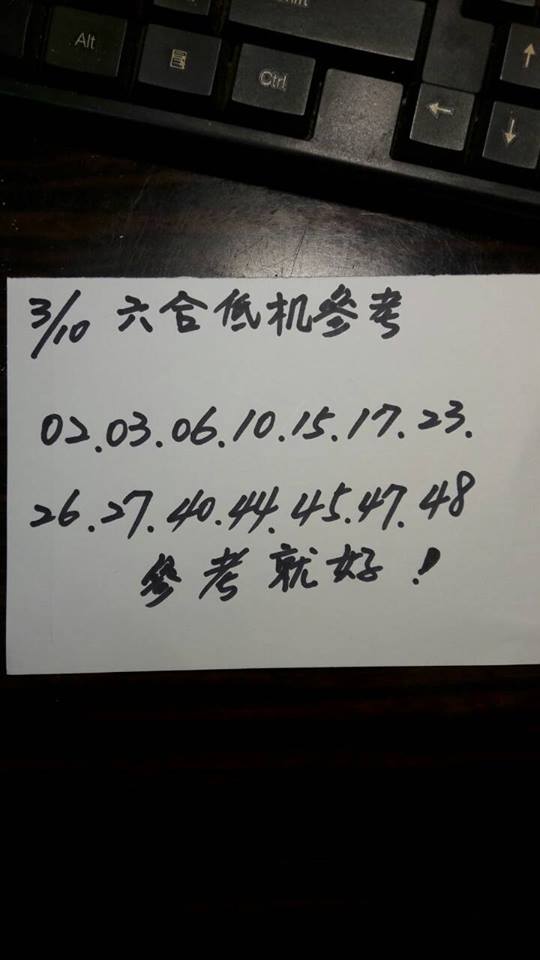 Alt
Ctrl
←
↑
↓
3/10 六合低机參考
02.03.06.10.15.17.23.
26.27.40.44.45.47.48
參考就好!